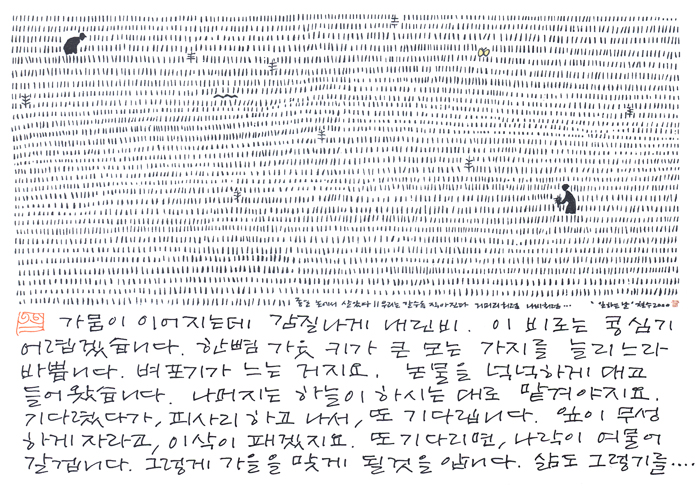 넓은 논에서 살았다 우리는 갈수록 작아진다 거머리처럼 나비처럼… '논에는 벗' 철수 2000
가뭄이 이어지는데 감질나게 내린 비. 이 비로는 콩심기
어렵겠습니다. 한뼘 가웃 키가 큰 모는 가지를 늘리느라
바쁩니다. 벼포기가 느는 거지요. 논물을 넉넉하게 대고
들어왔습니다. 나머지는 하늘이 하시는 대로 맡겨야지요.
기다렸다가, 피사리 하고 나서, 또 기다립니다. 잎이 무성
하게 자라고, 이삭이 패겠지요. 또 기다리면, 나락이 여물어
갈겁니다. 그렇게 가을을 맞게 될것을 압니다. 삶도 그렇기를....